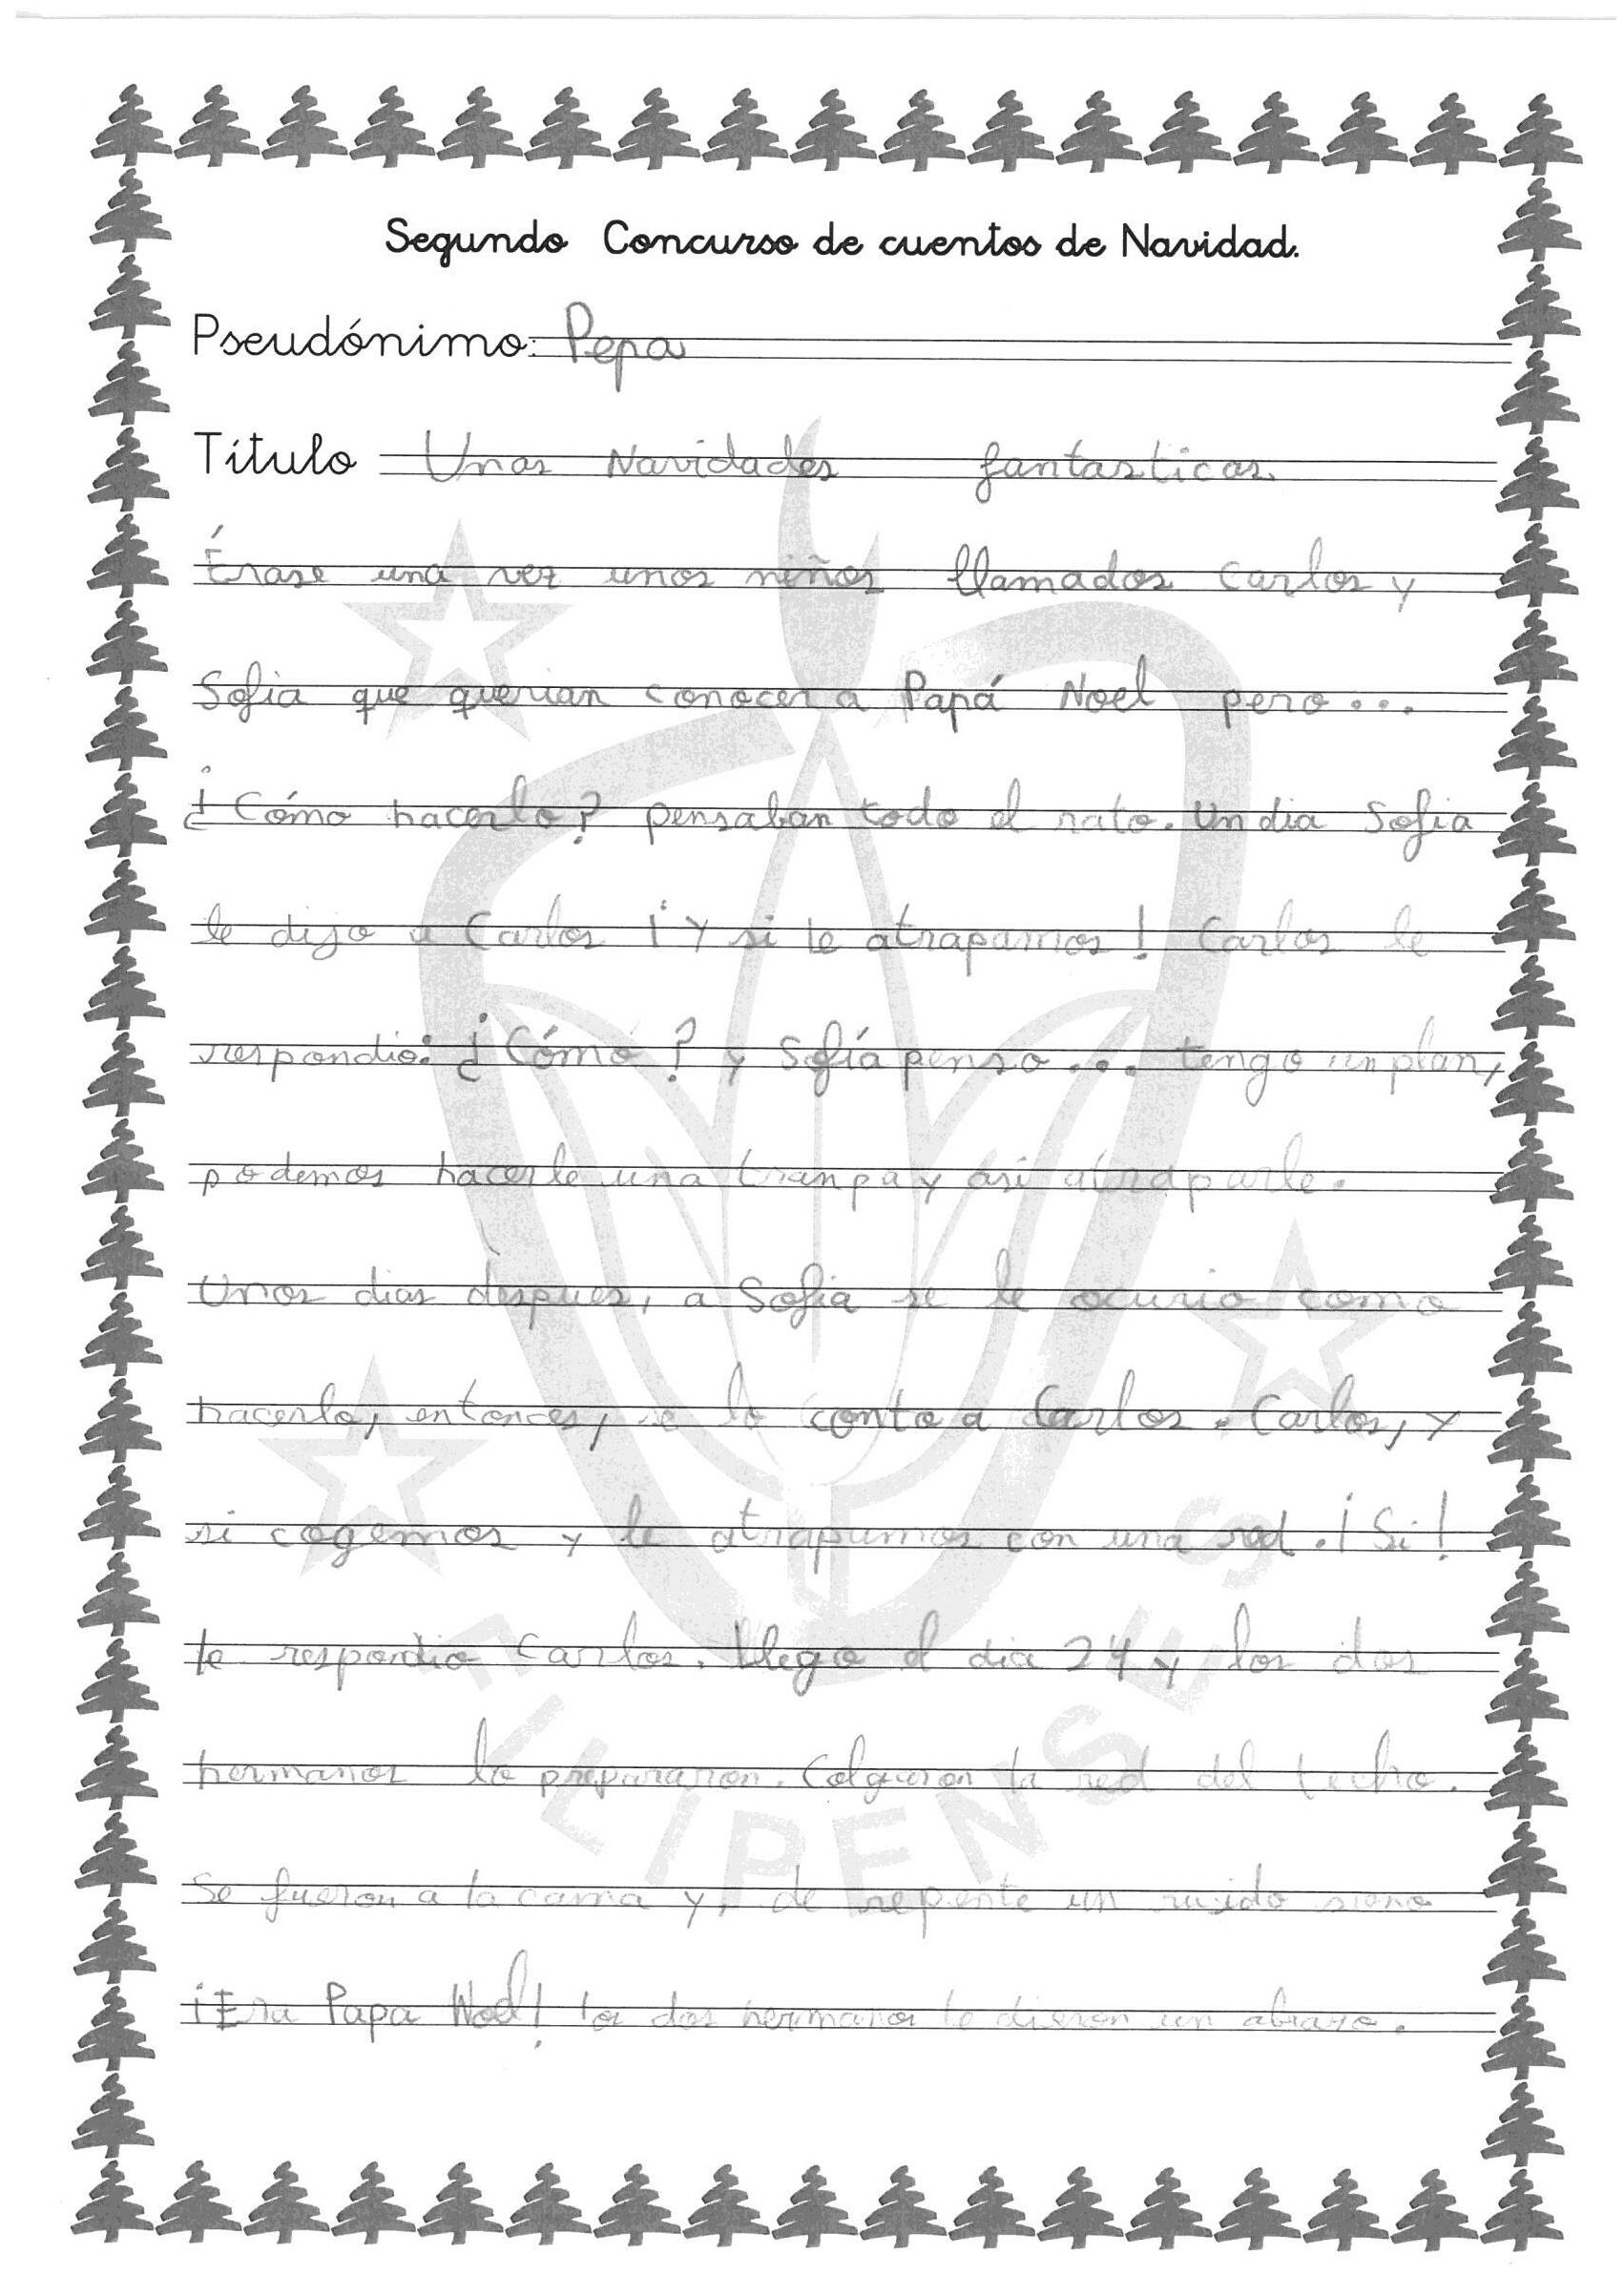 Segundo Concurso de cuentos de Navidad.
Pseudónimo: Pepa
Título Unas Navidades fantasticas
Érase una vez unos niños llamados Carlos y
Sofia que querian conocer a Papá Noel pero...
¿Cómo hacerlo? pensaban todo el rato. Un dia Sofia
le dijo a Carlos ¡Y si le atrapamos! Carlos le
respondio: ¿Cómo? y Sofía penso... tengo un plan,
podemos hacerle una tranpa y asi atraparle.
Unos dias despues, a Sofia se le ocurio como
hacerlo, entonces, se lo conto a Carlos. Carlos, y
si cogemos y le atrapamos con una red. ¡Si!
le respondio Carlos. Llego el dia 24 y los dos
hermanos lo prepararon. Colgueron la red del techo.
Se fueron a la cama y, de repente un ruido sono
¡Era Papa Noel! los dos hermanos le dieron un abrazo.
FILIPENSES